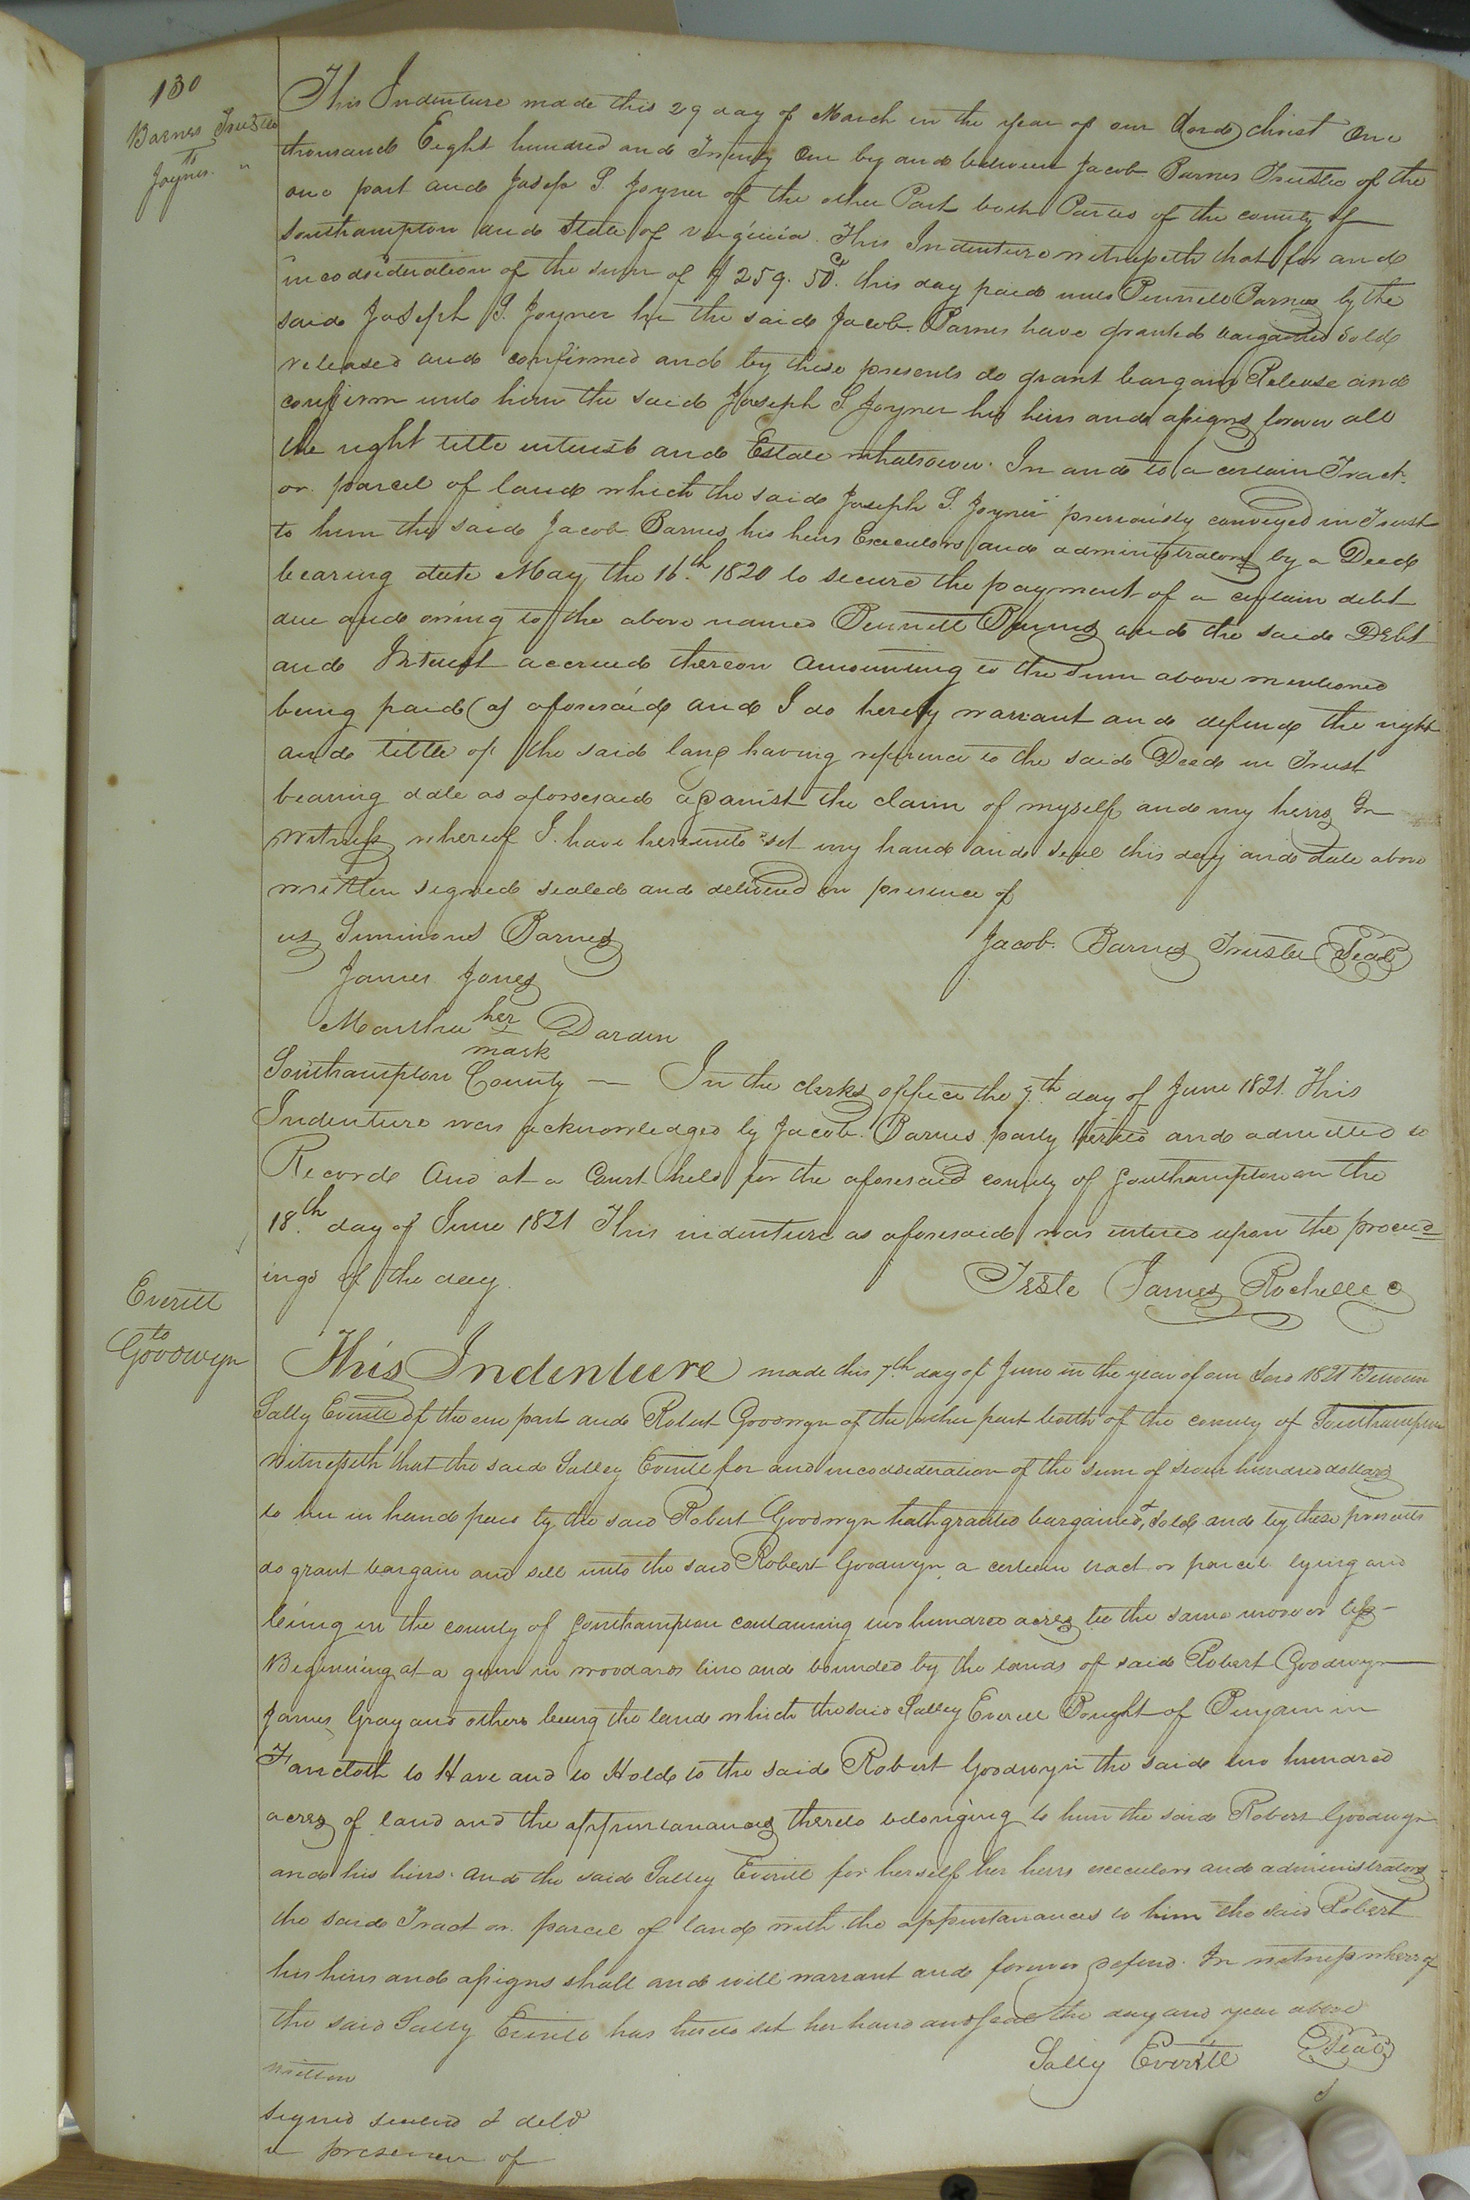 130
Barnes Trustee
to
Joyner
This Indenture made this 29 day of March in the year of our Lord christ One
thousand Eight hundred and Twenty One by and between Jacob Barnes Trustee of the
one part and Joseph S. Joyner of the other Part both Parties of the county of
Southampton and State of virginia. This Indenture witnesseth that for and
in codsideration of the sum of $ 259. 50 cts. this day paid unto Bennett Barnes by the
said Joseph S. Joyner he the said Jacob Barnes have granted bargained Sold
released and confirmed and by these presents do grant bargain Release and
confirm unto him the said Joseph S Joyner his heirs and assigns forever all
the right title interest and Estate whatsoever. In and to a certain Tract
or parcel of land which the said Joseph S. Joyner previously conveyed in Trust
to him the said Jacob Barnes his heirs Executors and administrators by a Deed
bearing date May the 16th 1820 to secure the payment of a certain debt
due and owing to the above named Bennett Barnes and the said Debt
and Interest accrued thereon Amounting to the Sum above mentioned
being paid as aforesaid and I do hereby warrant and defend the right
and tittle of the said land having reference to the said Deed in Trust
bearing date as aforesaid against the claim of myself and my heirs In
Witness whereof I have hereunto set my hand and seal this day and date above
written signed sealed and delivered in presence of
us Simmons Barnes
Jacob Barnes Trustee Seal
James Jones
Martha her Darden
mark
Southampton County — In the clerks office the 7th day of June 1821. This
Indenture was acknowledged by Jacob Barnes party hereto and admitted to
Record And at a Court held for the aforesaid county of Southampton on the
18th day of June 1821 This indenture as aforesaid was entered upon the proceed=
ings of the day.
Teste James Rochelle C
Everitt
to
Goodwyn
This Indenture made this 7th day of June in the year of our Lord 1821 Between
Sally Everitt of the one part and Robert Goodwyn of the other part both of the county of Southampton
Witnesseth that the said Salley Everitt for and in codsideration of the sum of seven hundred dollars
to her in hand paid by the said Robert Goodwyn hath granted bargained, & sold and by these presents
do grant bargain and sell unto the said Robert Goodwyn a certain tract or parcel lying and
being in the county of Southampton containing two hundred acres be the same more or less—
Beginning at a gum in woodards line and bounded by the lands of said Robert Goodwyn
James Gray and others being the land which the said Salley Everitt Bought of Benjamin
Fancloth to Have and to Hold to the said Robert Goodwyn the said two hundred
acres of land and the appurtanances thereto belonging to him the said Robert Goodwyn
and his heirs. and the said Salley Everitt for herself her heirs executors and administrators
the said Tract or parcel of land with the appurtanances to him the said Robert
his heirs and assigns shall and will warrant and forever defend. In witness whereof
the said Sally Everitt has hereto set her hand and seal the day and year above
written
Sally Everitt Seal
signed sealed & deld
in presence of